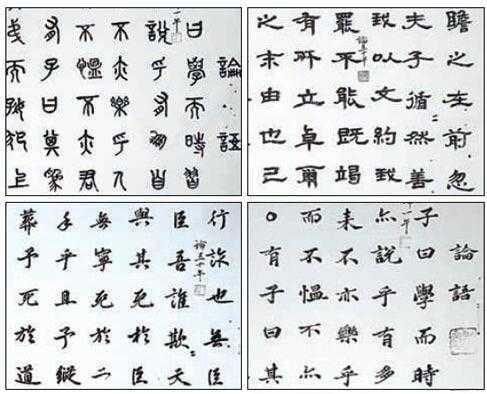 論語
曰學而時習
說乎有朋自
不亦樂乎人
不慍不亦君
有子曰其為
弟而好犯上
瞻之在前忽
夫子循然善
我以文約我
罷不能既竭
有所立卓爾
之末由也已
行詐也無臣
臣吾誰欺天
與其死於臣
無寧死於二
手乎且予縱
葬予死於道
論語
子曰學而時
亦說乎有多
來不亦樂乎
而不慍不亦
有子曰其